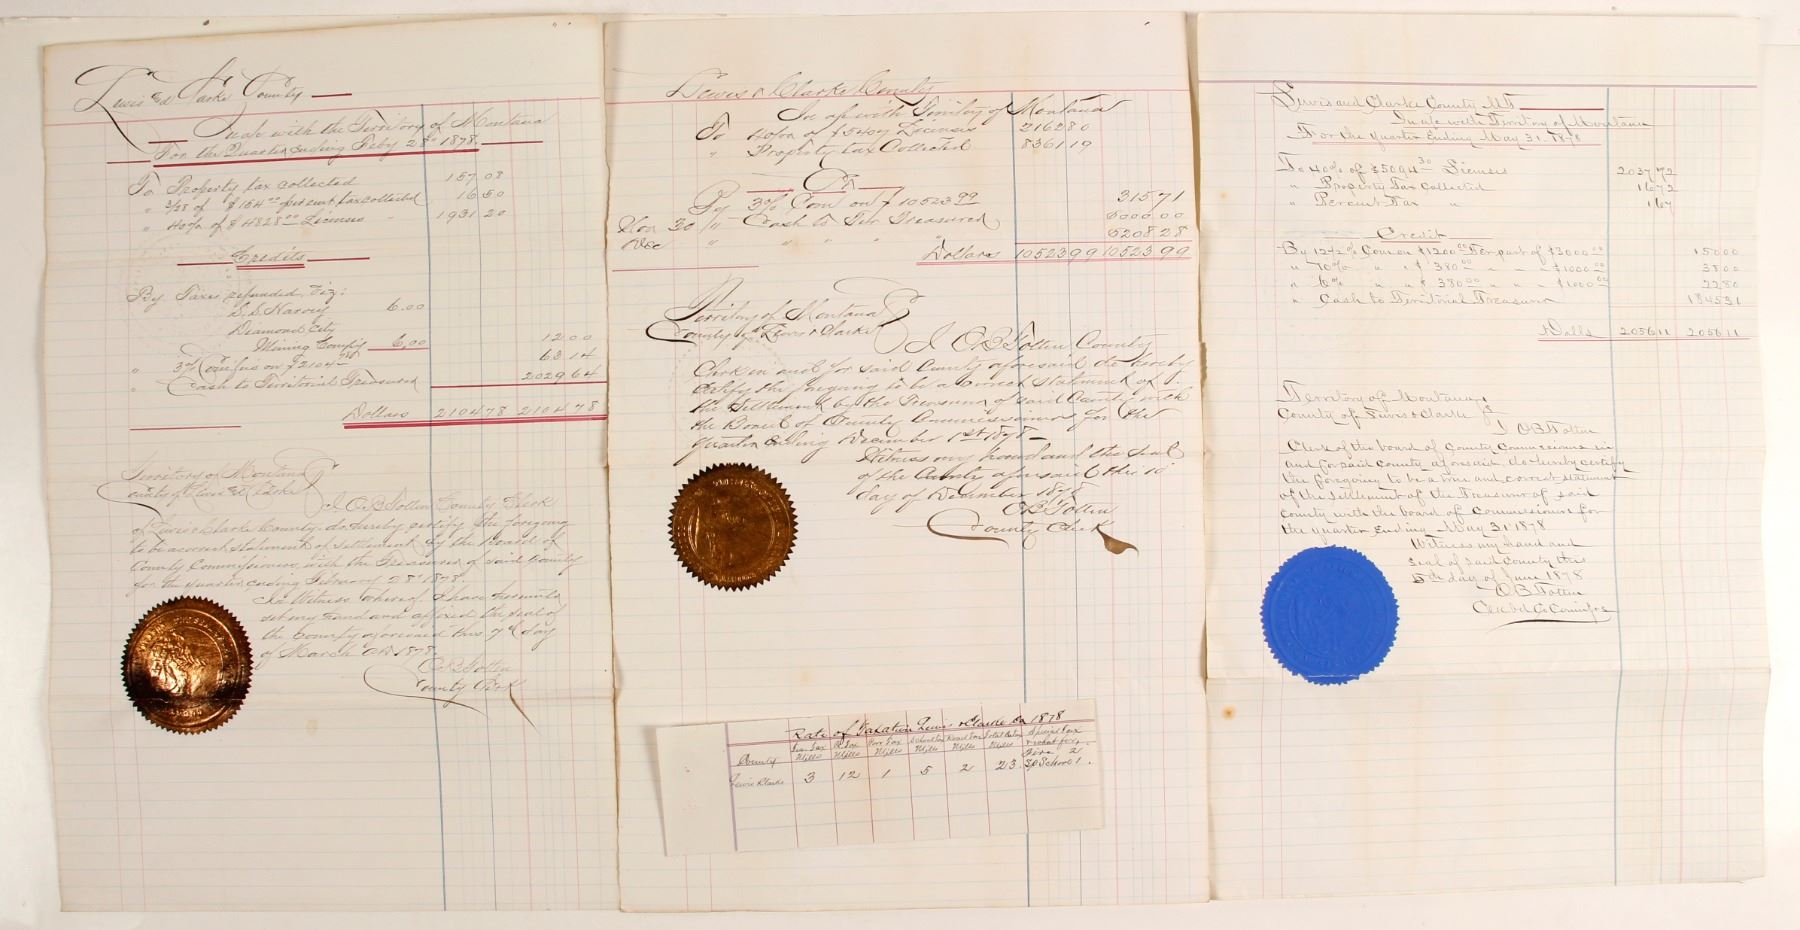 Lewis Ed Clarke County
In a/c with the Territory of Montana
For the Quarter ending Feby 28th 1878.
To Property tax collected 157 08
" 3/28 of $154 00 per cent tax collected 16 50
" 40% of $4828 00 Licenses - 1931 20
Credits
By Taxes refunded, Viz:
S. S. Harvey 6.00
Diamond City
Mining Compy 6.00 12 00
" 3% Com on $2104 78 63 14
" Cash to Territorial Treasurer 2029 64
Dollars 2104 78 2104 78
Territory of Montana
County of Lewis Ed Clarke
I O.B. Totten County Clerk
of Lewis & Clarke County do hereby certify the foregoing
to be a correct statement of settlement by the Board of
County Commissioners with the Treasurer of said County
for the quarter ending February 28th 1878.
In Witness whereof I have hereunto
set my hand and affixed the seal of
the County aforesaid this 7th day
of March AD 1878
O.B. Totten
County Clerk
Lewis & Clarke County
In a/c with Territory of Montana
To 40% of $5407 Licenses 2162 80
" Property tax Collected 8361 19
Cr
By 3% Com on $10523 99 315.71
Nov 30 " Cash to Ter Treasurer 5000.00
Dec " " " " " 5208 28
Dollars 10523 99 10523 99
Territory of Montana
County of Lewis & Clarke
I O B Totten County
Clerk in and for said County aforesaid do hereby
certify the foregoing to be a correct statement of
the Settlement by the Treasurer of said County with
the Board of County Commissioners for the
quarter ending December 1st 1878 -
Witness my hand and the seal
of the County aforesaid this 10
day of December 1878
O B Totten
County Clerk
Rate of Taxation Lewis & Clarke Co 1878
County Mills Mills Poor Tax Mills School Tax Mills Road Tax Mills Total Rate Mills Special Tax & what for
Fire 2
Lewis & Clarke 3 12 1 5 2 23. Sp School 1.
Lewis and Clarke County M.T.
In a/c with Territory of Montana
For the quarter ending May 31. 1878
To 40% of $5094 30 Licenses 2037 72
" Property Tax Collected 16 72
" Percent Tax " 1 67
Credit
By 12 1/2% Com on $1200 00 Ter part of $3000 00 150 00
" 10% " " $380 00 " " " $1000 00 38 00
" 6% " " $380 00 " " " $1000 00 22 80
" Cash to Territorial Treasurer 1845 31
Dolls 2056 11 2056 11
Territory of Montana
County of Lewis & Clarke
I O B Totten
Clerk of the board of County Commissioners in
and for said County aforesaid, do hereby certify
the foregoing to be a true and correct statement
of the settlement of the Treasurer of said
County with the board of Commissioners for
the quarter ending May 31 1878
Witness my hand and
seal of said County this
5th day of June 1878
O B Totten
Clk bd Co Comrs